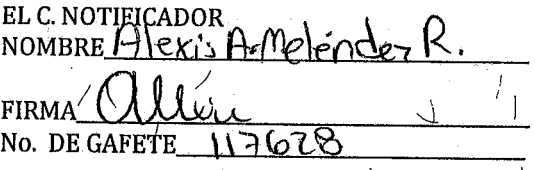 EL C. NOTIFICADOR
NOMBRE Alexis A. Meléndez R.
FIRMA
No. DE GAFETE 117628